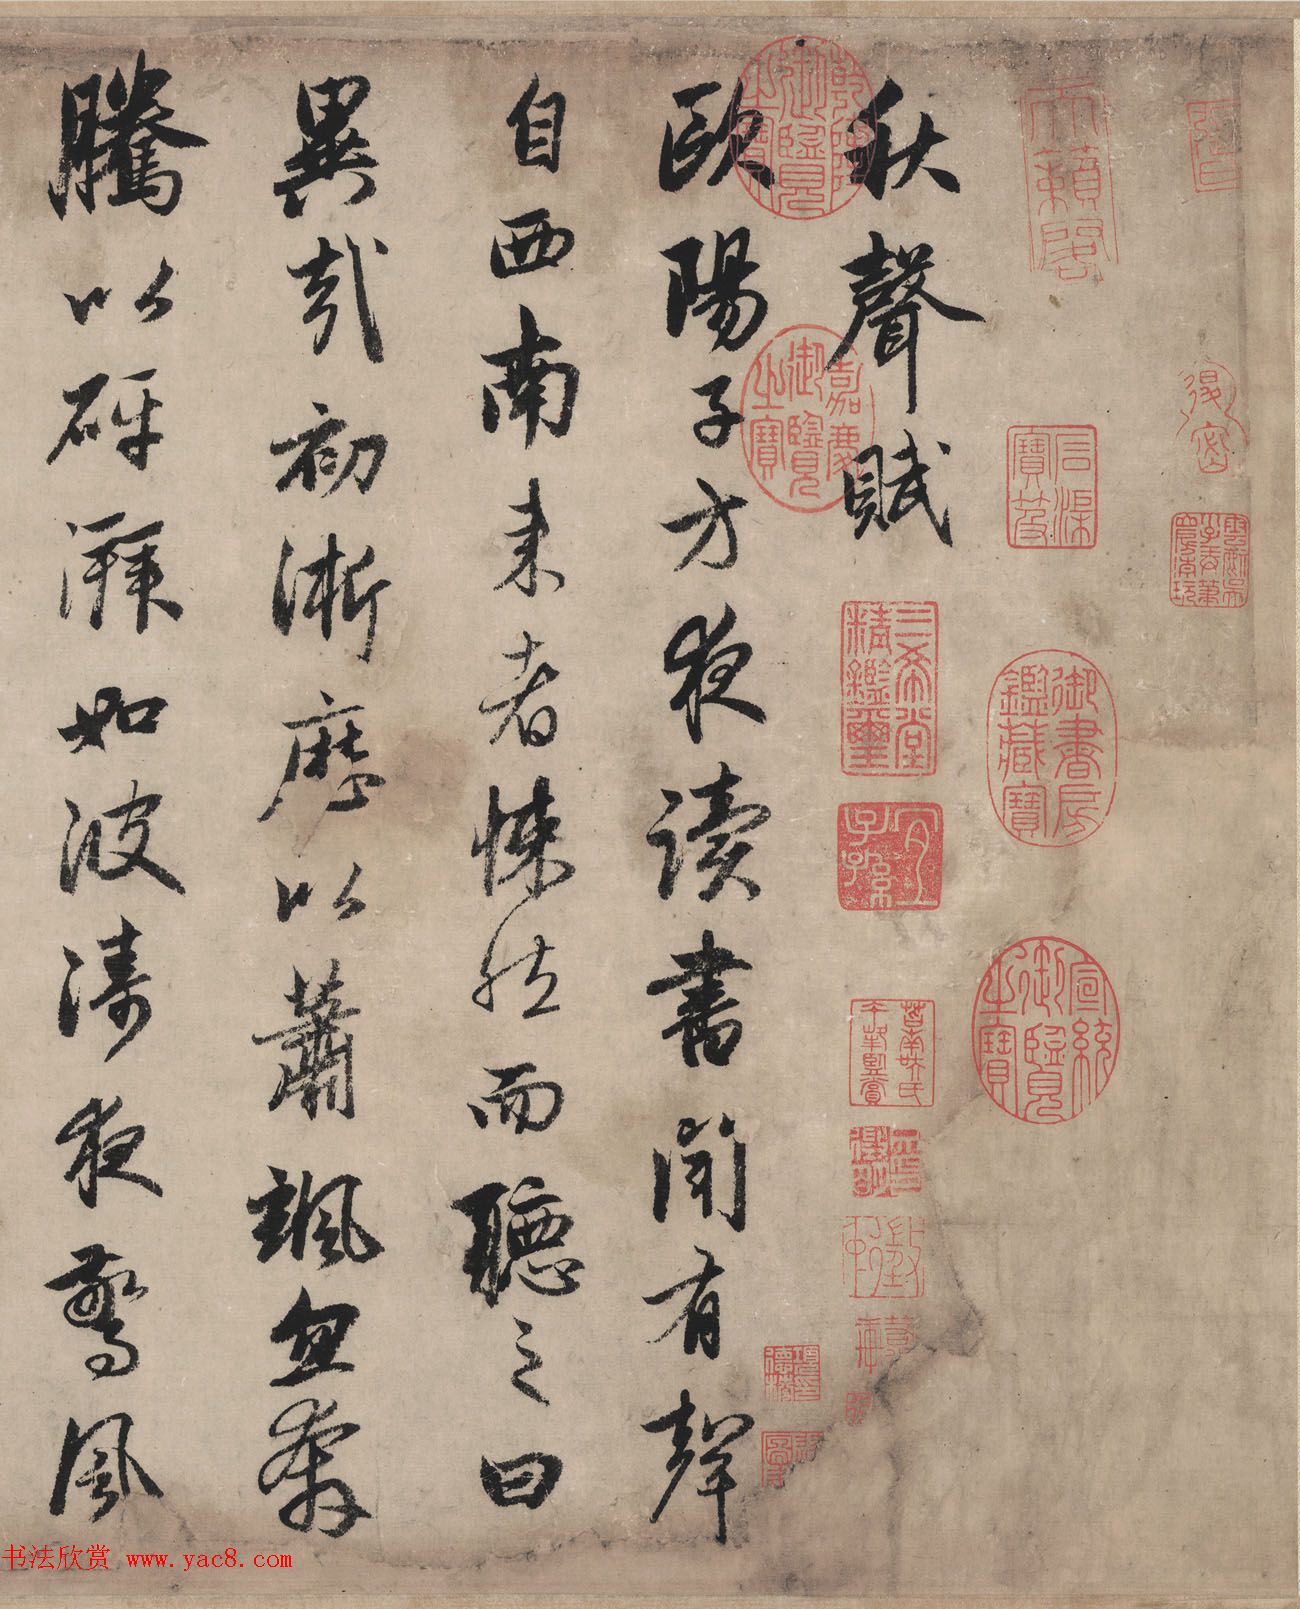 秋聲賦
歐陽子方夜讀書聞有聲
自西南来者悚然而聽之曰
異哉初淅瀝以蕭颯忽奔
騰以砰湃如波濤夜驚風
乾隆御覽之寶
嘉慶御覽之寶
天籟閣
石渠寶笈
御書房鑑藏寶
宣統御覽之寶
三希堂精鑑璽
宜子孫
书法欣赏 www.yac8.com